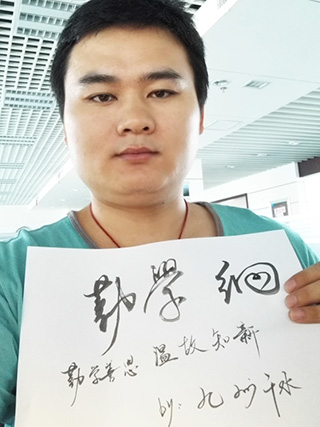 勤學網
勤学善思 温故知新
by: 九州千水